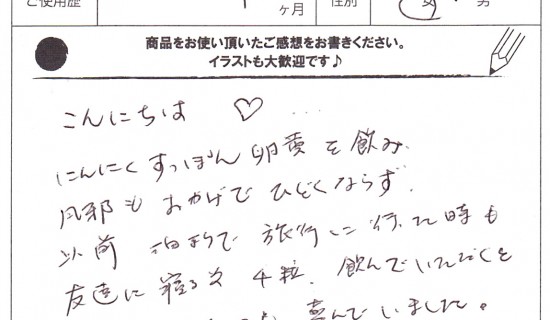 ご使用歴 ヶ月 性別 女・男
商品をお使い頂いたご感想をお書きください。
イラストも大歓迎です♪
こんにちは ♡ …
にんにくすっぽん卵黄を飲み、
風邪もおかげでひどくならず、
以前 泊りで旅行に行った時も
友達に寝る前 4粒、飲んでいただくと
喜んでいました。